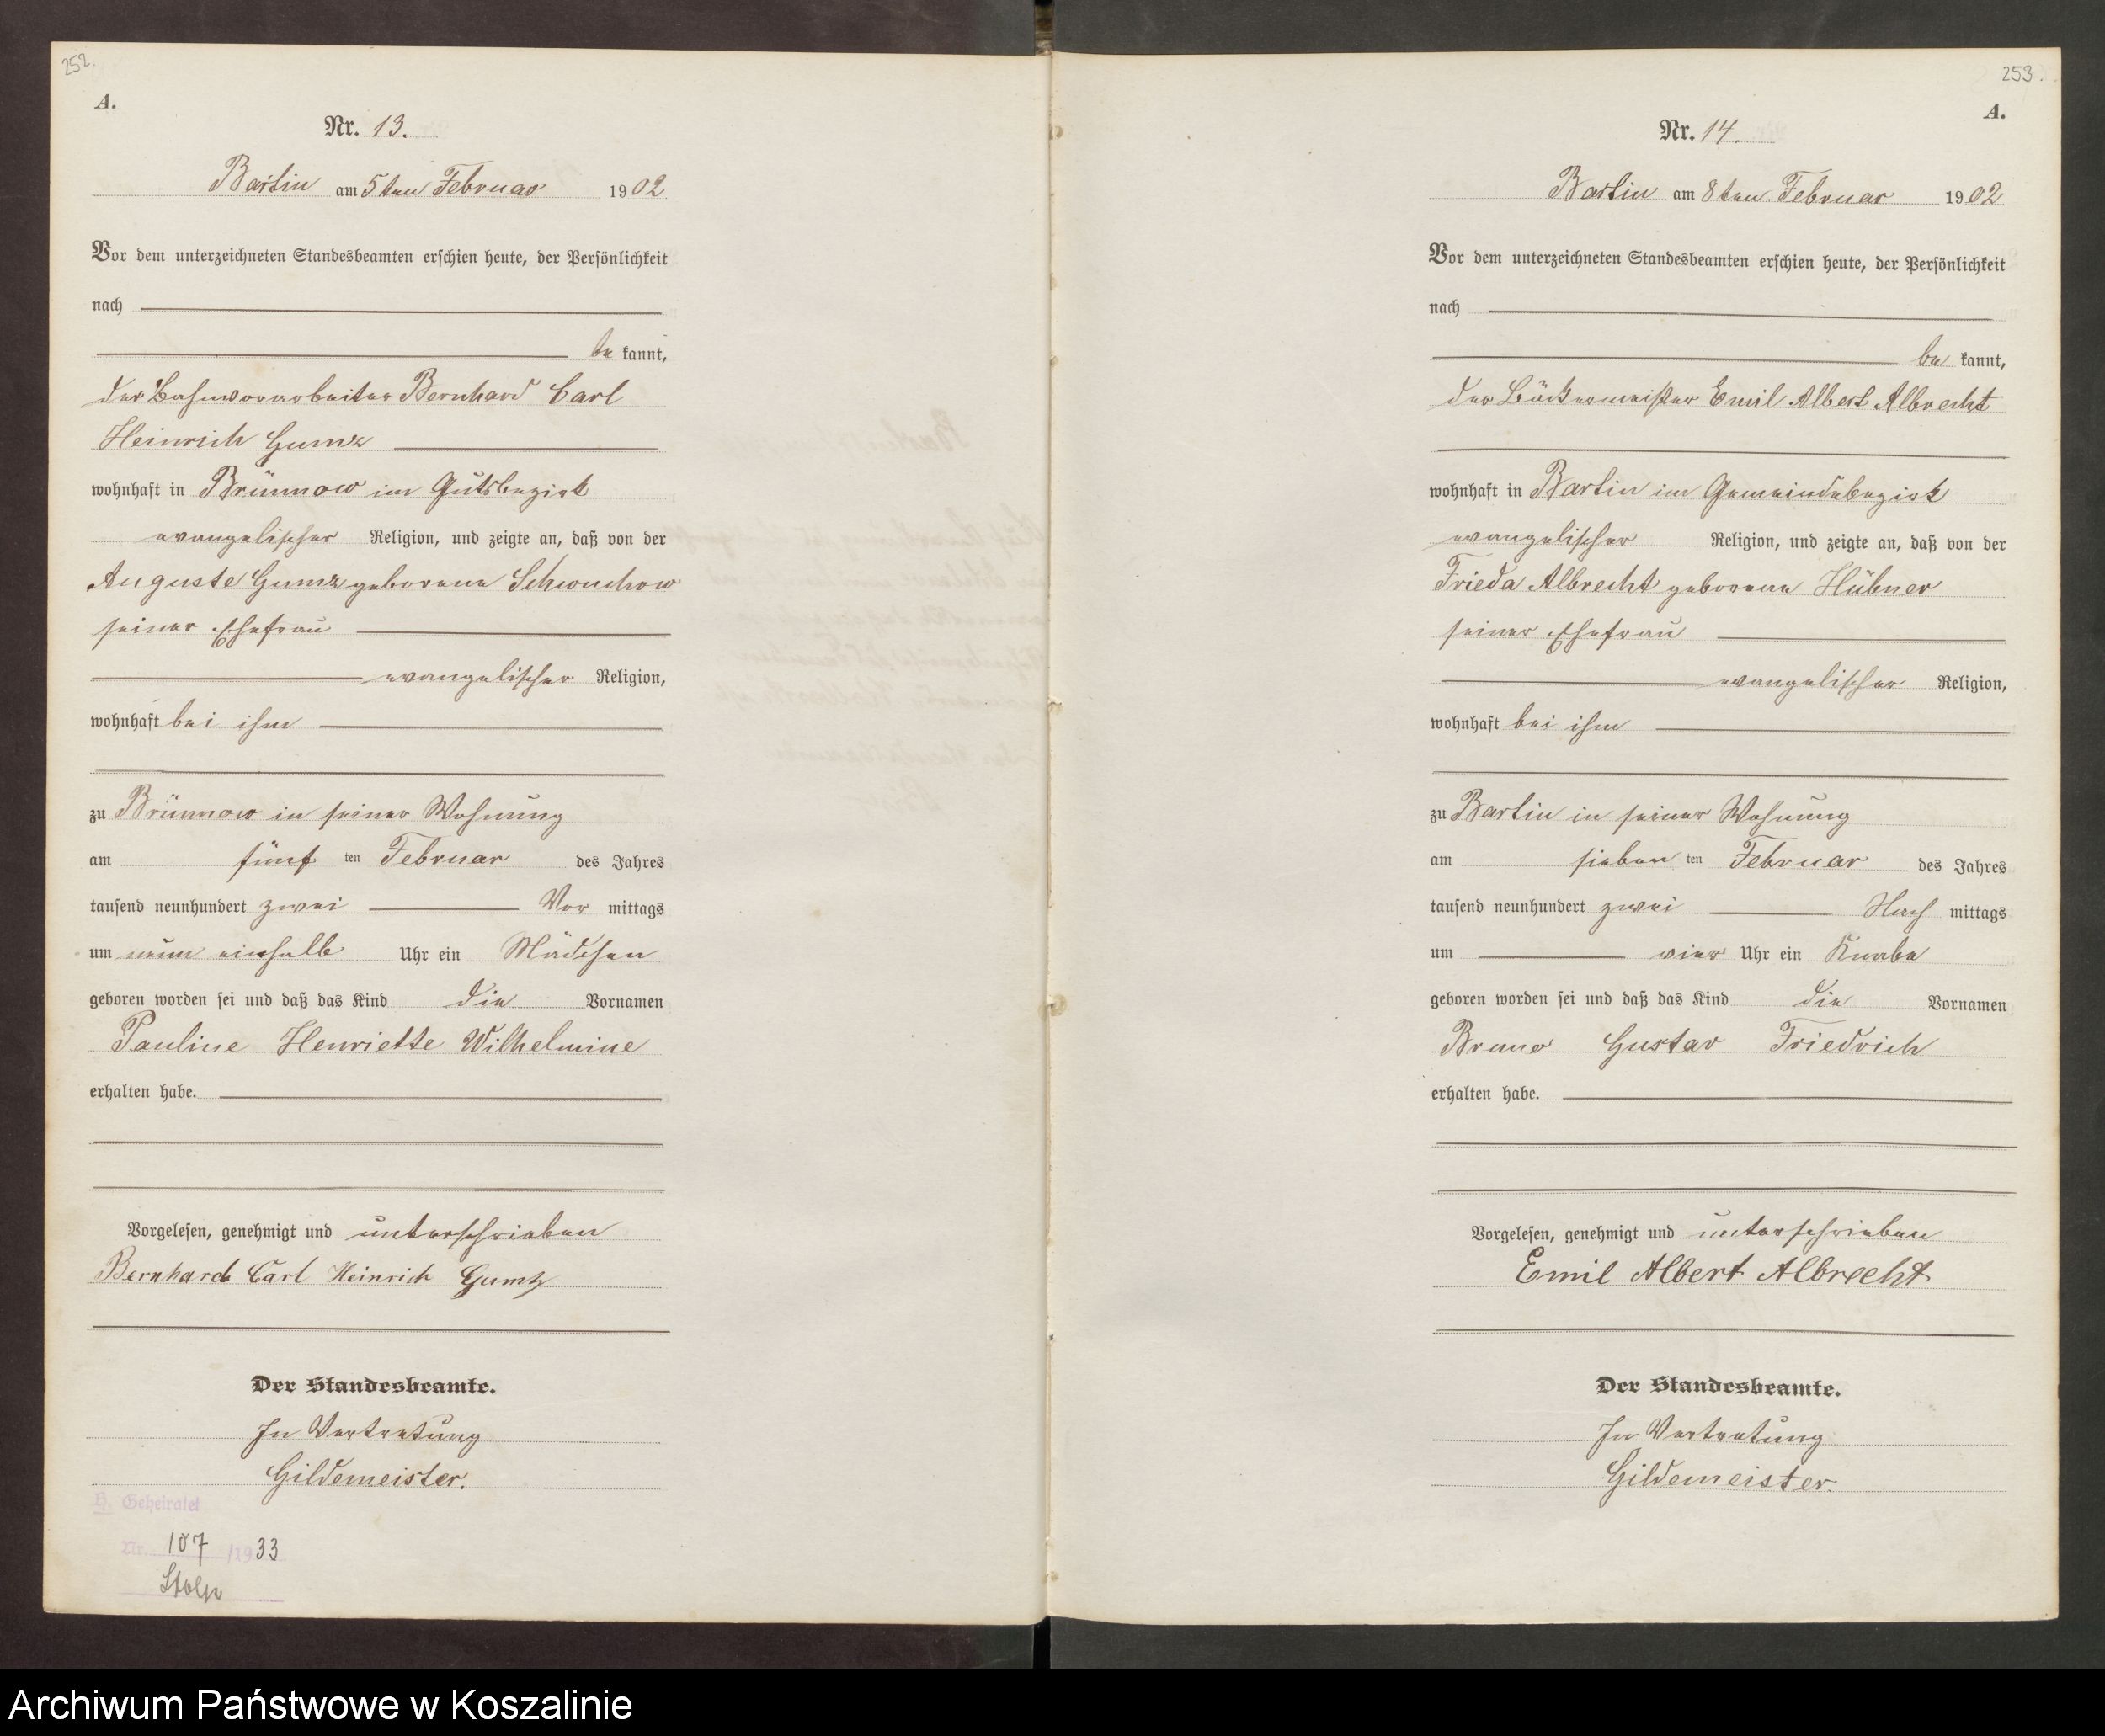 252.
A.
Nr. 13.
Bartin am 5ten Februar 1902
Vor dem unterzeichneten Standesbeamten erschien heute, der Persönlichkeit
nach
be kannt,
der Bahnvorarbeiter Bernhard Carl
Heinrich Gumz
wohnhaft in Brünnow im Gutsbezirk
evangelischer Religion, und zeigte an, daß von der
Auguste Gumz geborene Schwuchow
seiner Ehefrau
evangelischer Religion,
wohnhaft bei ihm
zu Brünnow in seiner Wohnung
am fünf ten Februar des Jahres
tausend neunhundert zwei Vor mittags
um neun einhalb Uhr ein Mädchen
geboren worden sei und daß das Kind die Vornamen
Pauline Henriette Wilhelmine
erhalten habe.
Vorgelesen, genehmigt und unterschrieben
Bernhard Carl Heinrich Gumtz
Der Standesbeamte.
In Vertretung
Gildemeister.
H. Geheiratet
Nr. 107 /1933
Stolp
253.
A.
Nr. 14.
Bartin am 8ten Februar 1902
Vor dem unterzeichneten Standesbeamten erschien heute, der Persönlichkeit
nach
be kannt,
der Bäckermeister Emil Albert Albrecht
wohnhaft in Bartin im Gemeindebezirk
evangelischer Religion, und zeigte an, daß von der
Frieda Albrecht geborene Hübner
seiner Ehefrau
evangelischer Religion,
wohnhaft bei ihm
zu Bartin in seiner Wohnung
am sieben ten Februar des Jahres
tausend neunhundert zwei Nach mittags
um vier Uhr ein Knabe
geboren worden sei und daß das Kind die Vornamen
Bruno Gustav Friedrich
erhalten habe.
Vorgelesen, genehmigt und unterschrieben
Emil Albert Albrecht
Der Standesbeamte.
In Vertretung
Gildemeister.
Archiwum Państwowe w Koszalinie